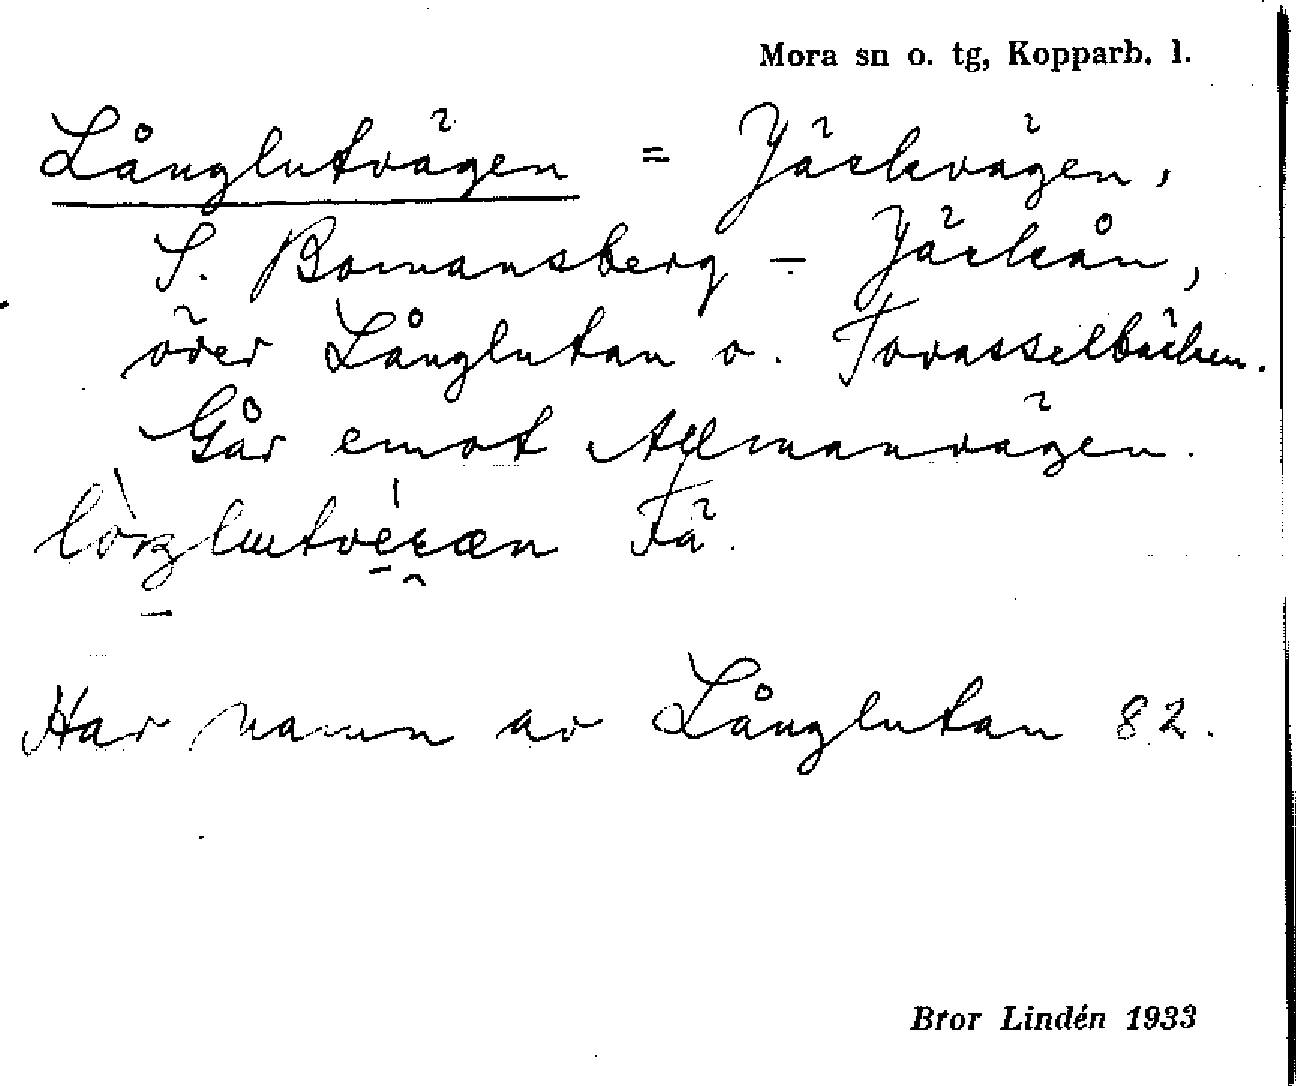 Mora sn o. tg, Kopparb. l.
Långlutvägen = Jäckvägen,
S. Bomansberg - Jäckån,
över Långlutan o. Tovasselbäcken.
Går emot Allmanvägen.
Fä.
Har namn av Långlutan 82.
Bror Lindén 1933